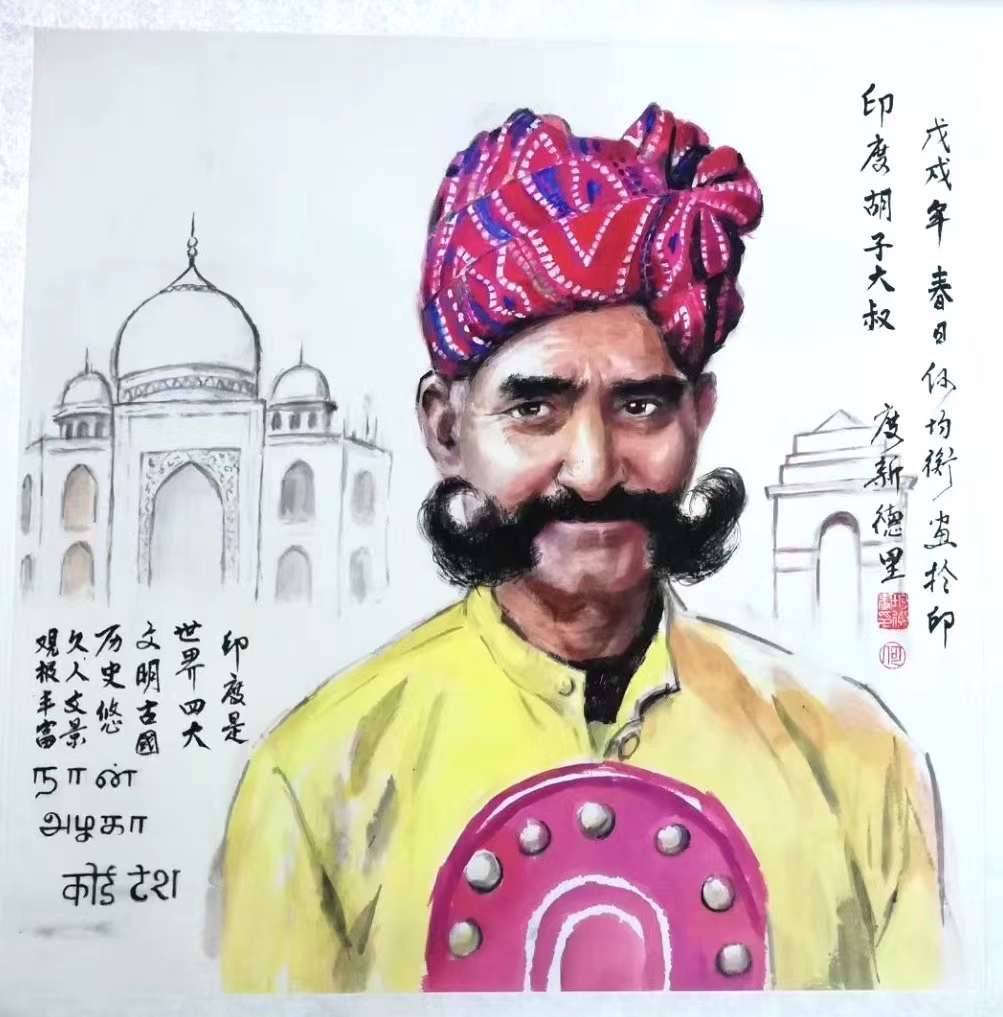 印度胡子大叔
戊戌年春日何均衡畫於印
度新德里
印度是
世界四大
文明古國
历史悠
久人文景
观报丰富
நான்
அழகா
कोई देश